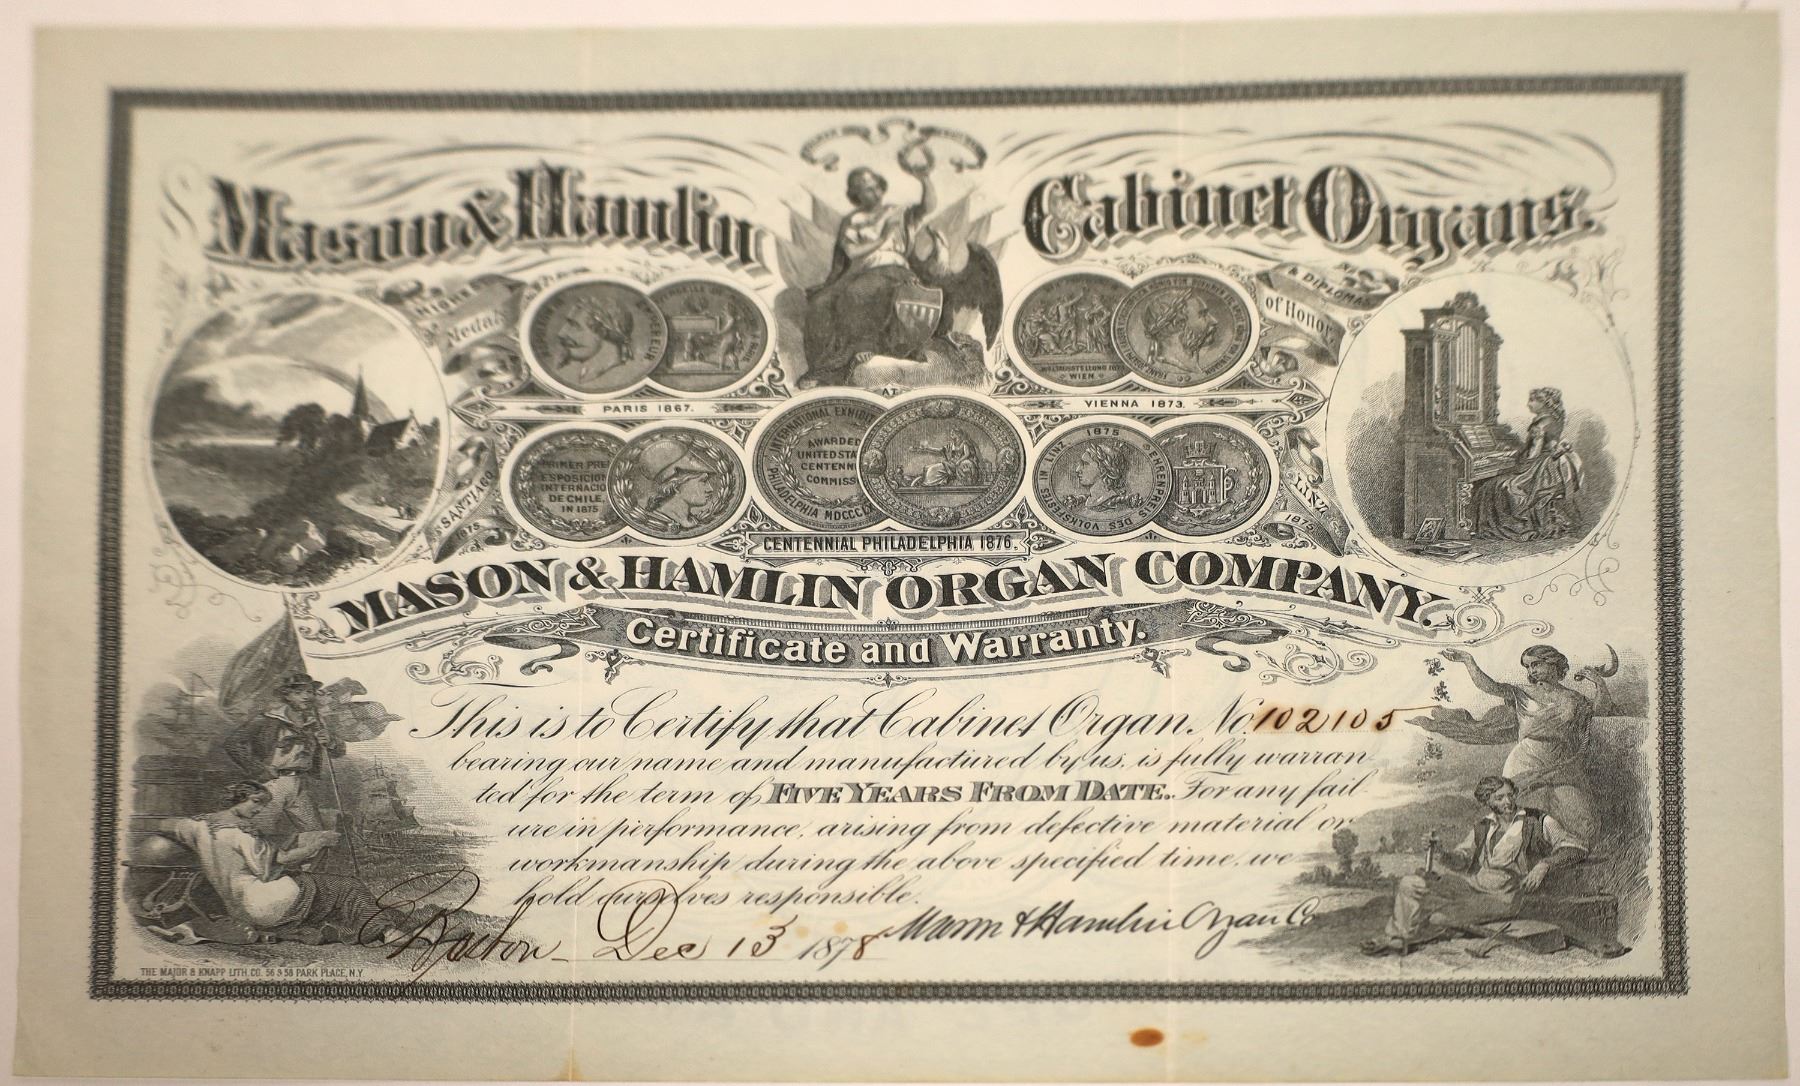 Mason & Hamlin Cabinet Organs.
HIGHEST Medal
& DIPLOMA of Honor
EMPEREUR
WELTAUSSTELLUNG 1873
WIEN
AT
PARIS 1867.
VIENNA 1873.
SANTIAGO 1875
PRIMER PRE
ESPOSICION
INTERNACIO
DE CHILE,
IN 1875
INTERNATIONAL EXHIBIT
PHILADELPHIA MDCCCL
AWARDED
UNITED STA
CENTENN
COMMISS
1875
SEHRENPREIS DES VOLKSFESTES IN LINZ
LINZ 1875
CENTENNIAL PHILADELPHIA 1876.
MASON & HAMLIN ORGAN COMPANY.
Certificate and Warranty.
This is to Certify that Cabinet Organ No. 102105
bearing our name and manufactured by us, is fully warran
ted for the term of FIVE YEARS FROM DATE. For any fail
ure in performance, arising from defective material or
workmanship during the above specified time, we
hold ourselves responsible.
Boston Dec 13 1878 Mason & Hamlin Organ Co
THE MAJOR & KNAPP LITH. CO. 56 & 58 PARK PLACE, N.Y.